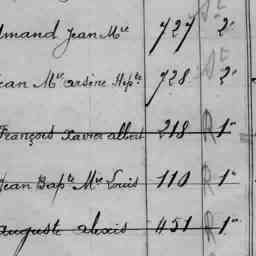 dmand Jean Mie 727 2e
ean Mie arsène Hypte 728 2e
François Xavier albert 218 R 1er
Jean Bapte Mie Louis 110 R 1er
auguste alexis 451 R 1er